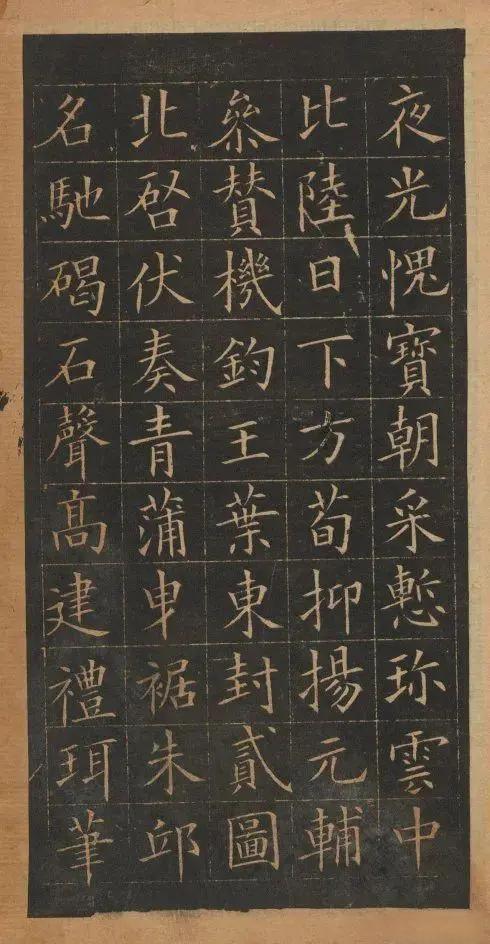 夜光愧寶朝采慙珎雲中
比陸日下方荀抑揚元輔
叅賛機鈞王葉東封貳圖
北啓伏奏青蒲曳裾朱邱
名馳碣石聲髙建禮珥筆